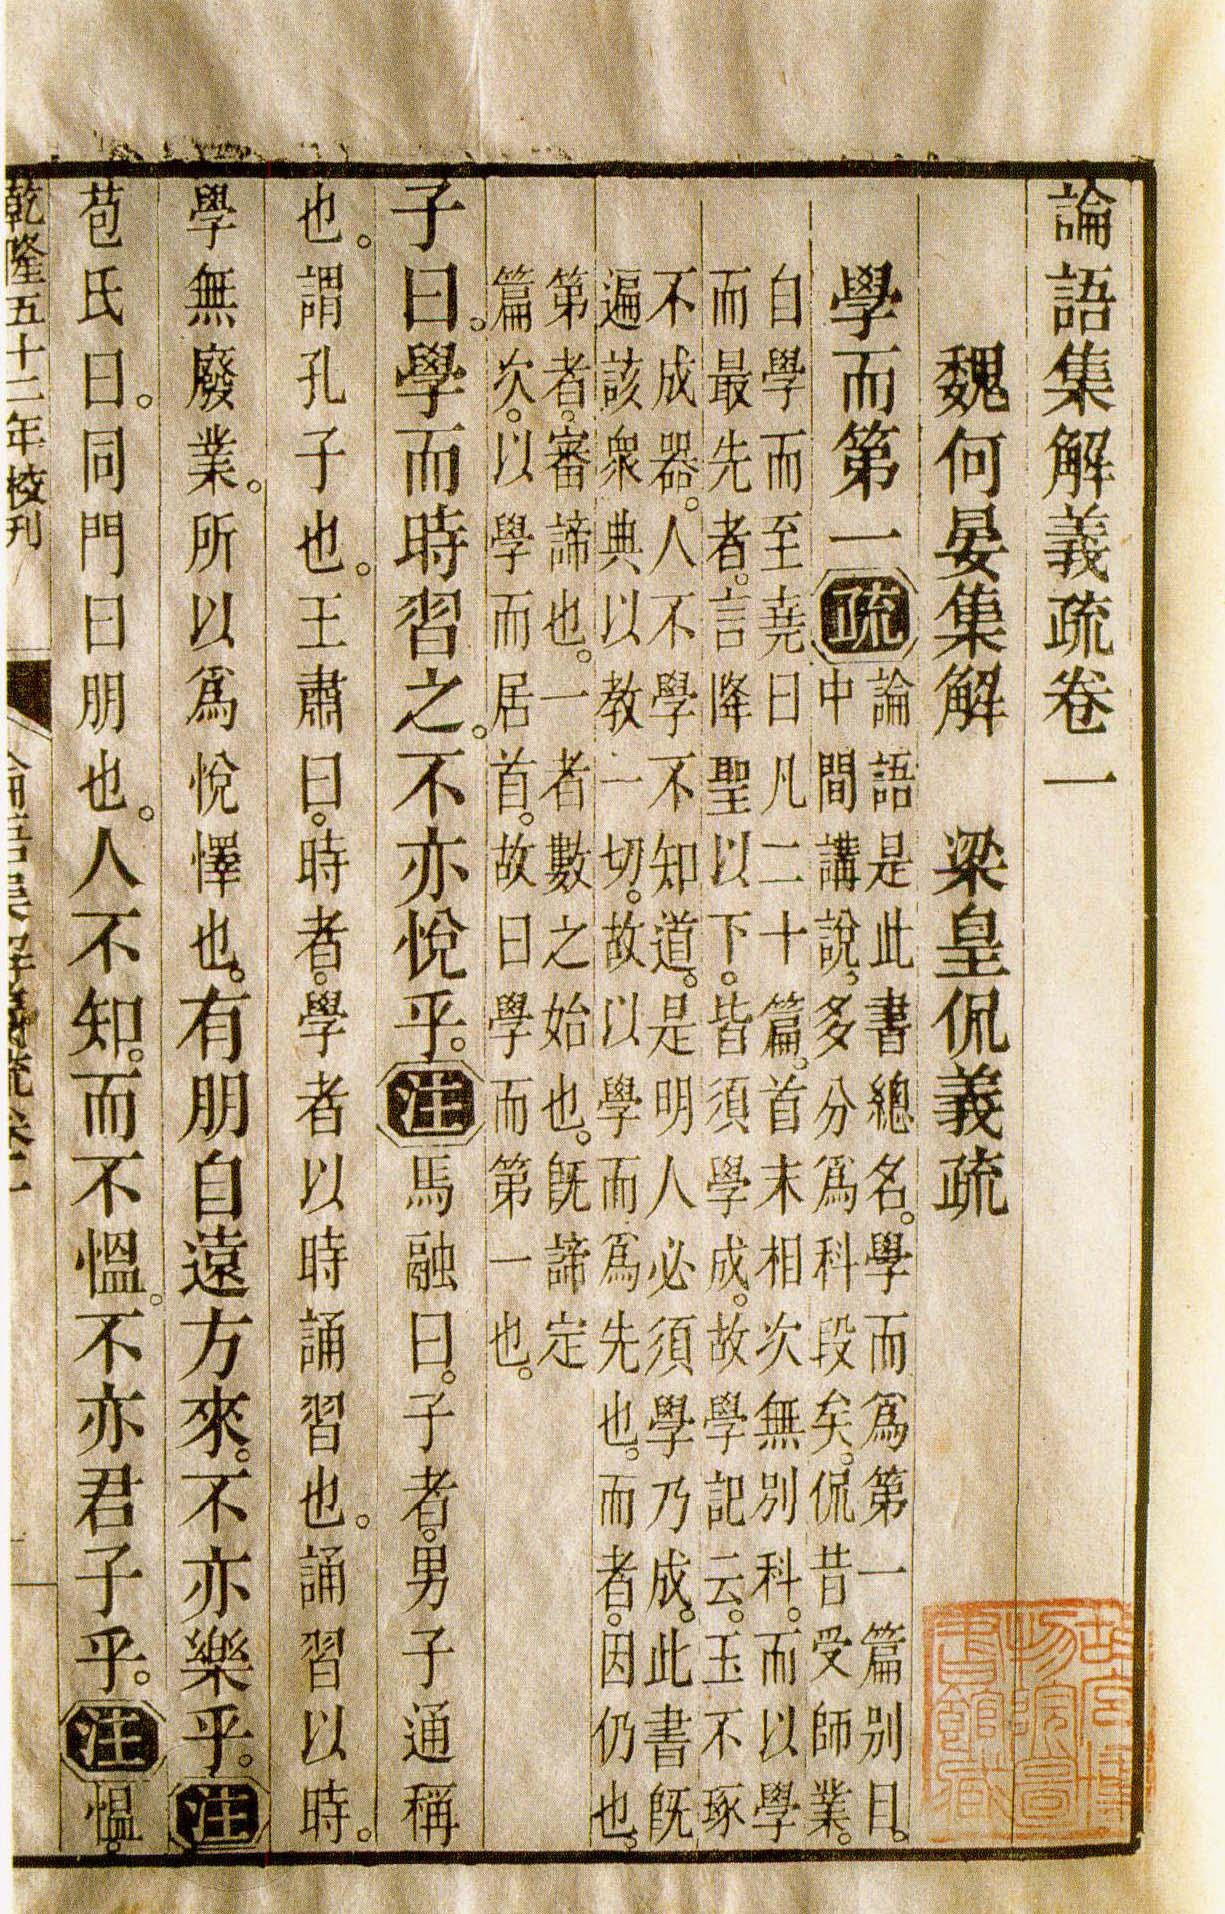 論語集解義疏卷一
魏何晏集解　梁皇侃義疏
學而第一疏論語是此書總名。學而爲第一篇別目。
中間講說。多分爲科段矣。侃昔受師業。
自學而至堯曰凡二十篇。首末相次無別科。而以學
而最先者。言降聖以下。皆須學成。故學記云。玉不琢
不成器。人不學不知道。是明人必須學乃成。此書旣
遍該衆典以教一切。故以學而爲先也。而者。因仍也。
第者。審諦也。一者數之始也。旣諦定
篇次。以學而居首。故曰學而第一也。
子曰。學而時習之。不亦悅乎。注馬融曰。子者。男子通稱
也。謂孔子也。王肅曰。時者。學者以時誦習也。誦習以時。
學無廢業。所以爲悅懌也。有朋自遠方來。不亦樂乎。注
苞氏曰。同門曰朋也。人不知。而不慍。不亦君子乎。注慍。
乾隆五十二年校刊
論語集解義疏卷一
故宮博
物院圖
書館藏